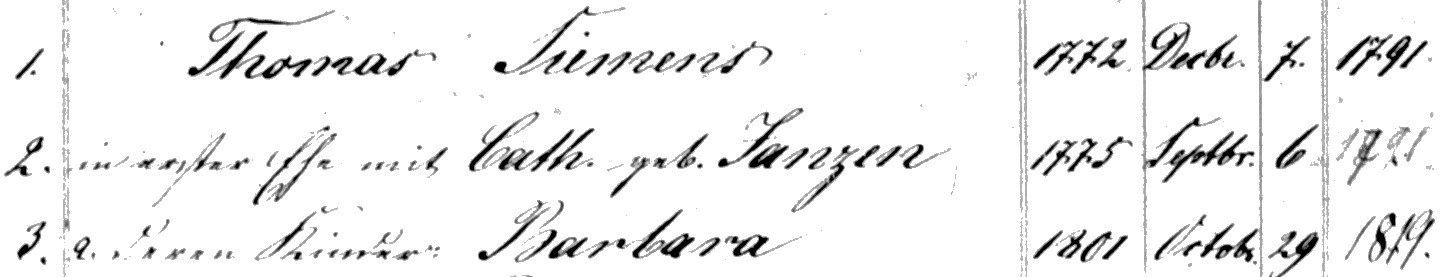 1. Thomas Siemens 1772 Decbr. 7. 1791.
2. in erster Ehe mit Cath. geb. Janzen 1775 Septbr. 6 1791
3. a. deren Kinder: Barbara 1801 Octobr. 29 1819.